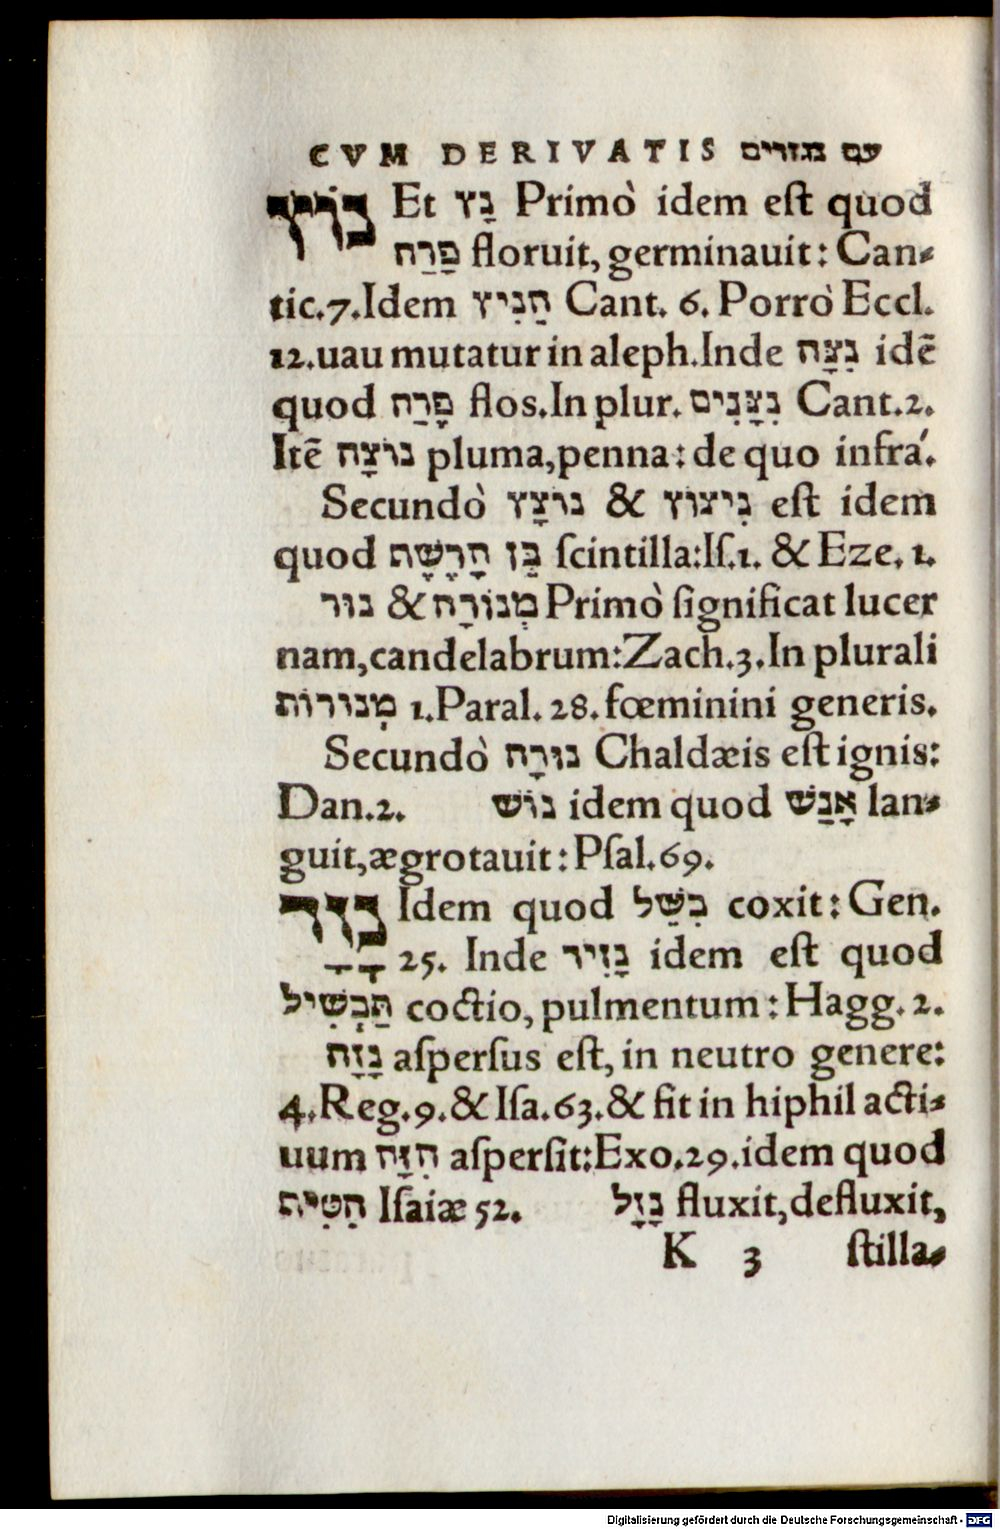 CVM DERIVATIS עם מגזרים
נוץ Et נָץ Primò idem eſt quod
פָּרַח floruit, germinauit: Can-
tic.7. Idem הֵנִיץ Cant. 6. Porrò Eccl.
12. uau mutatur in aleph. Inde נִצָּה idē
quod פֶּרַח flos. In plur. נִצָּנִים Cant.2.
Itē נוֹצָה pluma, penna: de quo infrá.
Secundò נוֹצָץ & נִיצוֹץ eſt idem
quod בֶּן חָרָשָׁה ſcintilla: Iſ.1. & Eze. 1.
נור & מְנוֹרָה Primò ſignificat lucer
nam, candelabrum: Zach.3. In plurali
מְנוֹרוֹת 1. Paral. 28. fœminini generis.
Secundò נוּרָה Chaldæis eſt ignis:
Dan.2. נוֹשׁ idem quod אָנַשׁ lan-
guit, ægrotauit: Pſal.69.
Idem quod בִּשֵּׁל coxit: Gen.
25. Inde נָזִיד idem eſt quod
תַּבְשִׁיל coctio, pulmentum: Hagg. 2.
נָזָה aſperſus eſt, in neutro genere:
4. Reg.9. & Iſa.63. & fit in hiphil acti-
uum הִזָּה aſperſit: Exo.29. idem quod
הִטִּיה Iſaiæ 52. נָזָל fluxit, defluxit,
K 3 ſtilla-
Digitalisierung gefördert durch die Deutsche Forschungsgemeinschaft - DFG